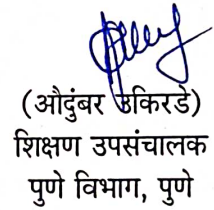 (औदुंबर उकिरडे)
शिक्षण उपसंचालक
पुणे विभाग, पुणे